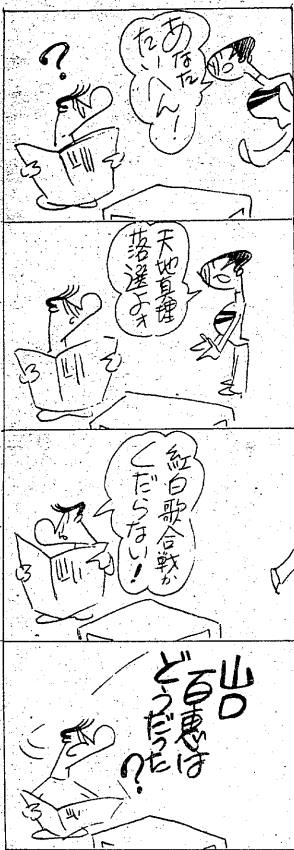 あなた
たいへん！
？
天地真理
落選よォ
紅白歌合戦か
くだらない！
山口百恵は
どうだった？